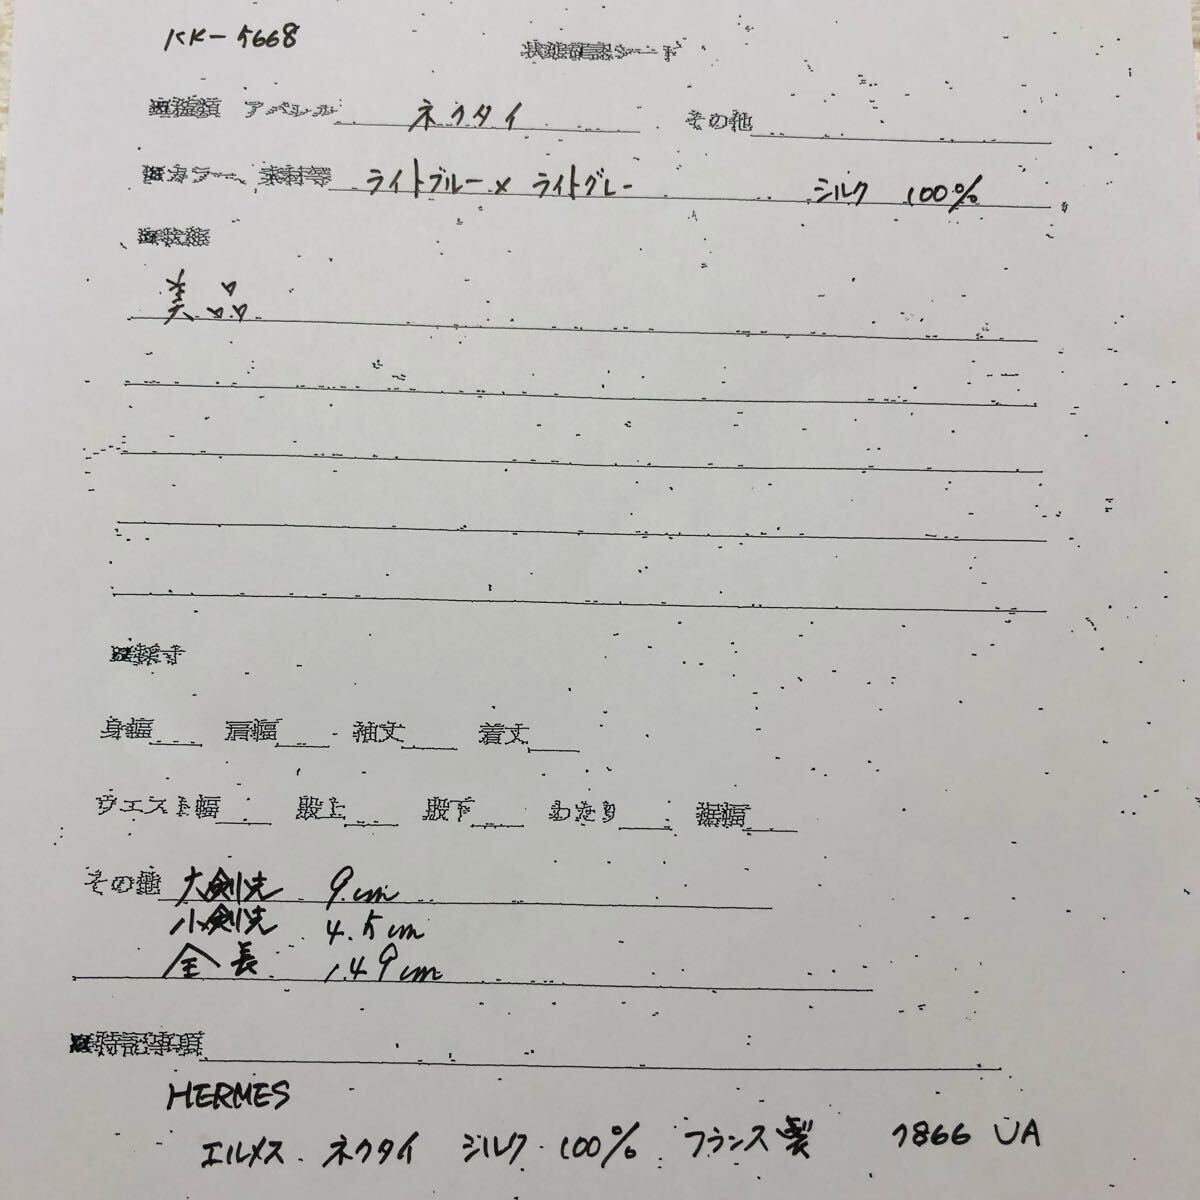 KK-5668
状態確認シート
■種類 アパレル ネクタイ その他
■カラー、素材等 ライトブルー×ライトグレー シルク 100%
■状態
美品
■採寸
身幅 肩幅 袖丈 着丈
ウエスト幅 股上 股下 わたり 裾幅
その他 大剣先 9cm
小剣先 4.5cm
全長 149cm
■特記事項
HERMES
エルメス ネクタイ シルク 100% フランス製 7866 UA